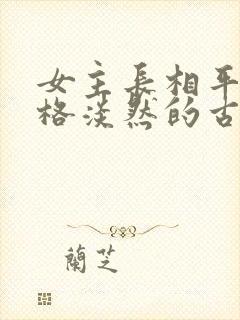 女主長相平
格淡然的古
蘭芝